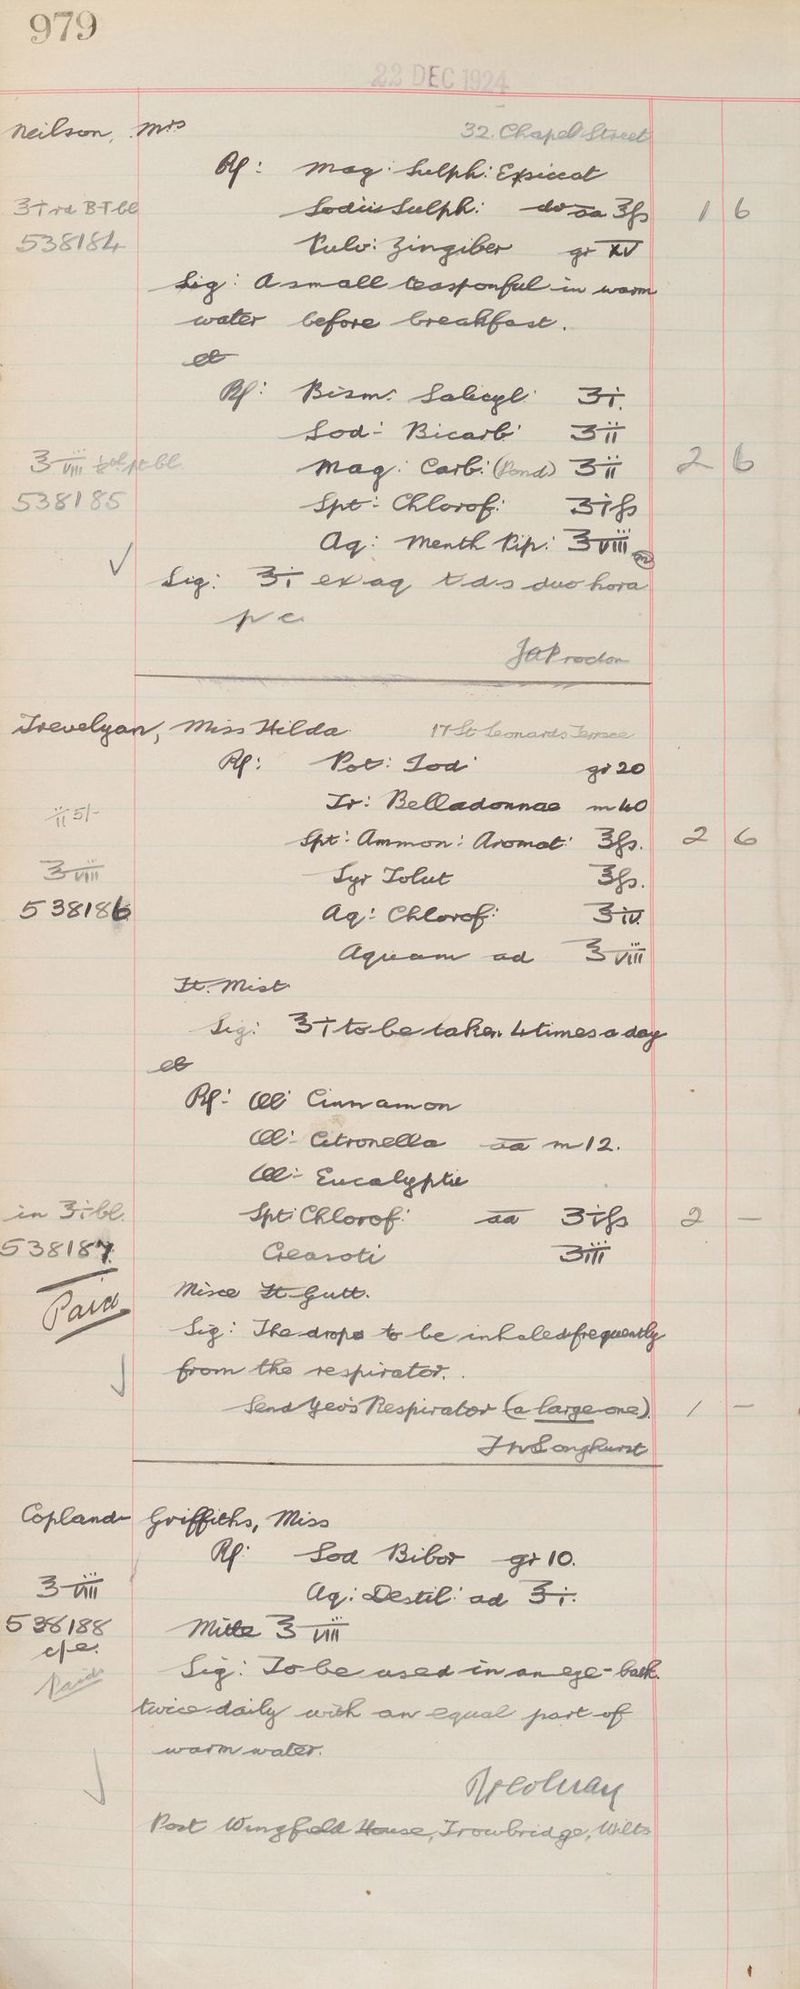 979
22 DEC 1924
Neilson, Mrs 32. Chapel Street
Rx: Mag: Sulph: Exsiccat
Sodii Sulph: aa ℥fs 1 6
538184 Pulv: Zingiber gr xv
Sig: A small teasponful in warm
water before breakfast.
et
Rx: Bism: Salicyl: ʒi.
Sod: Bicarb: ʒii
℥viii Mag: Carb: (Pond) ʒii 2 6
538185 Spt: Chlorof: ʒifs
Aq: Menth Pip: ℥viii
Sig: ℥i ex aq t d s duo hora
p c.
Trevelyan, Miss Hilda 17 St Leonards Terrace
Rx: Pot: Iod: gr 20
Tr: Belladonnae m 40
ii 5/- Spt: Ammon: Aromat: ℥fs. 2 6
℥viii Syr Tolut ℥fs.
538186 Aq: Chlorof: ℥iv
Aquam ad ℥viii
Ft. Mist
Sig: ℥i to be taken 4 times a day
et
Rx: Ol: Cinnamon
Ol: Citronella aa m 12.
Ol: Eucalypti
in ℥i bl. Spt: Chlorof: aa ʒifs 2 —
538187 Creasoti ʒiii
Misce Ft Gutt.
Paid
Sig: The drops to be inhaled frequently
from the respirator.
Send Yeo's Respirator (a large one). 1 —
Copland-Griffiths, Miss
Rx: Sod Bibor gr 10.
℥viii Aq: Destil: ad ℥i.
538188 Mitte ℥viii
c/e.
Paid
Sig: To be used in an eye-bath
twice daily with an equal part of
warm water.
Post Wingfield House, Trowbridge, Wilts